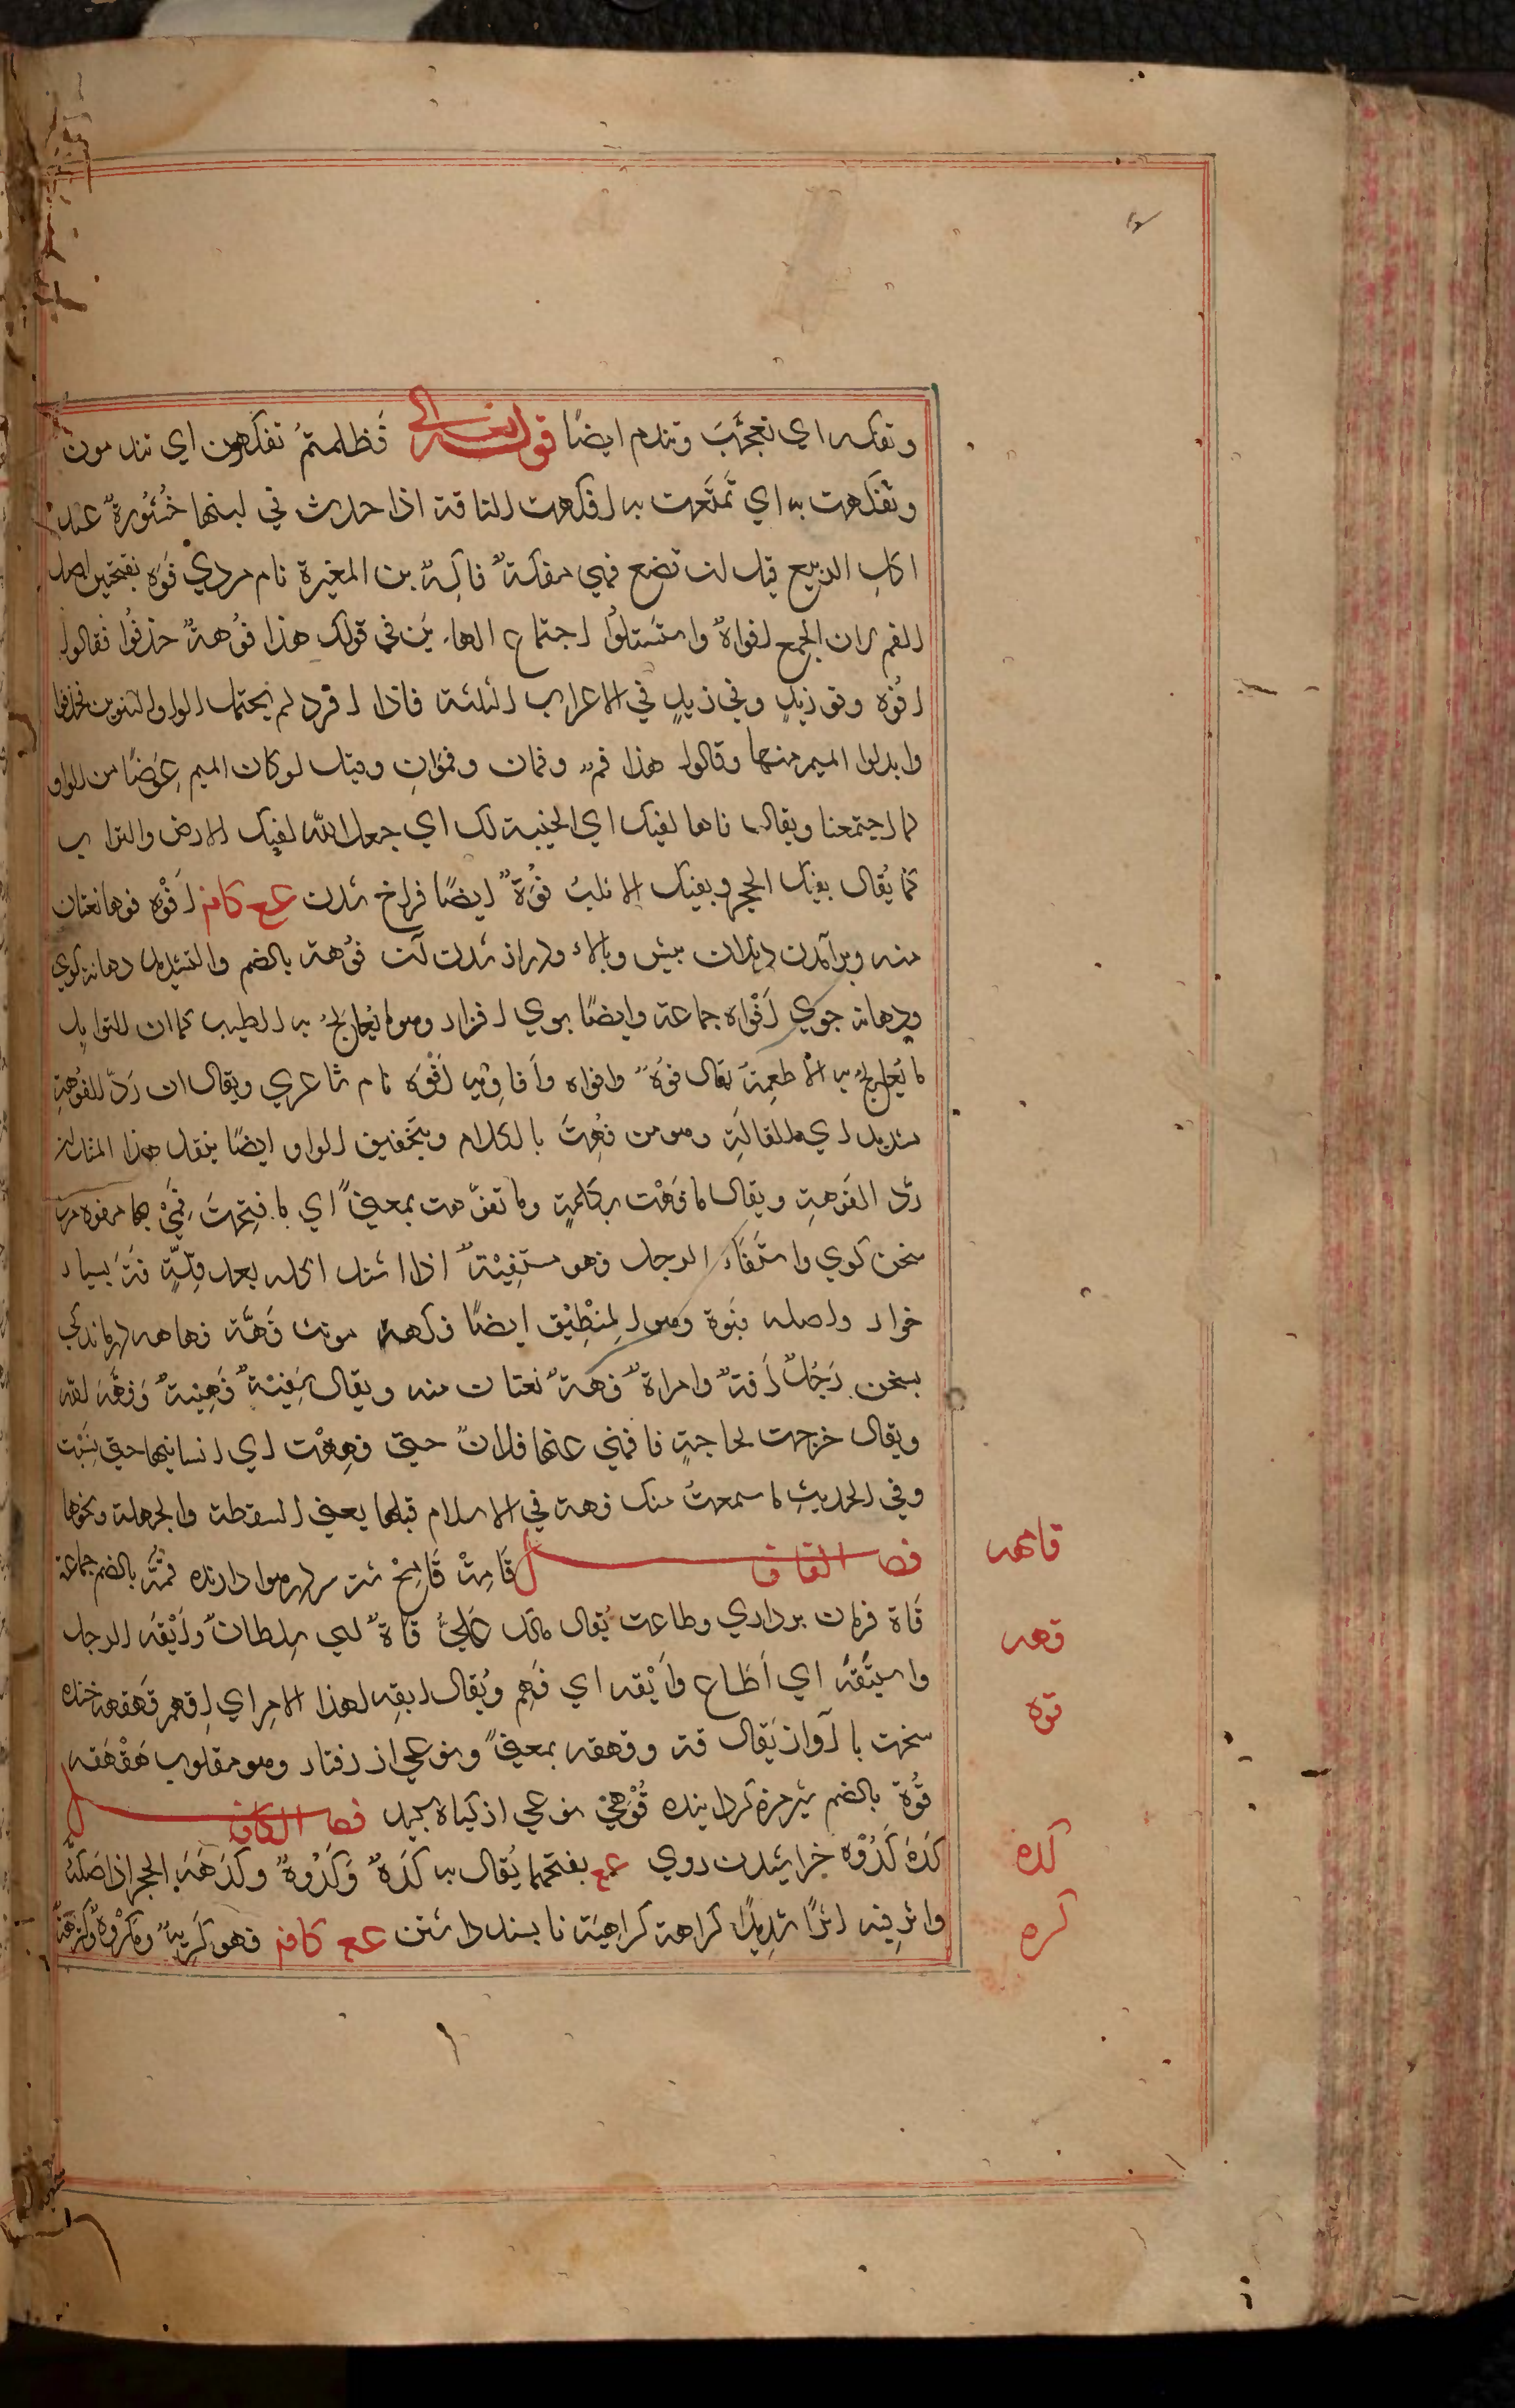 وتفكه اي تعجّب وتندم ايضًا قوله تعالى فَظلمتمُ تفكهون اي تندمون
وتفكهت به اي تمَتّعت به افكهت الناقة اذا حدرث في لبنها خُثُورةٌ عند
اكل الربيع قبل ان تضع فهي مفكهٌ فاكِهٌ بن المغيرة نام مردي فَوَه بفتحتين اصل
الفم لان الجمع افواهٌ واستَثقلُوا اجتماع الهاءين في قولك هذا فوُههٌ حذفُوا فقالوا
افُوْه وفو زيدٍ وفي زيدٍ في الاعراب الثلثة فاذا افرد لم يحتمل الواو التنوين فحذفوا
وابدلوا الميم منها وقالوا هذا فمٌ وفمان وفمَوَانِ وقيل لو كان الميم عِوَضًا من الواو
لما اجتمعتا ويقال فاها لفيك اي الخيبة لك اي جعل الله لفيك الارض والتراب
كما يُقال بفيك الحجر وبفيك الاثلبُ فوُهٌ ايضًا فراخ شدن ع ع كافه اَفْوه فوها نعتان
منه وبرآمدن دندان بيش وبالاء ودراز شدن آن فوُهة بالضم والتشديد دهانهٔ كوي
ودهانهٔ جوي اَفْواه جماعة وايضًا بوي افزار وهو ما يُعالَجُ به الطيب كما ان التوابل
ما يُعالجُ به الاطعِمَة يقال فوُهٌ وافواه وَاَفاوِيه اَفْوَه نام شاعري ويقال ان رَدّ الفوُهةِ
شديد اي القالَةِ وهو من فُهتُ بالكلام وبتخفيف الواو ايضًا ينقل هذا المثل
ردّ الفَوهةِ ويقال ما فُهْت بكلمةٍ وما تفوّهت بمعنىً اي ما فتحتُ فَمي بها مفوه مرد
سخن كوي واستَفَاهَ الرجل فهو مستَفِيْهٌ اذا اشتد اكله بعد قِلّةٍ فَيّه بسيار
خوار واصله فيوه وهو المِنْطِيْق ايضًا فكهه مونث فَهّه فهاهه درماندكي
بسخن رَجُلٌ فَهٌّ وامراةٌ فَهّةٌ نعتان منه ويقال سَفِيْهٌ فَهِيهٌ وَفهّهَه الله
ويقال خرجت لحاجةٍ فافهّني عنها فلانٌ حتى فهِهْت اي انسانيها حتى نسِيْت
وفي الحديث ما سمعتُ منك فهة في الاسلام قبلها يعني السقطة والجهلة ونحوها
فصل القاف قَامِهْ قَامِحْ شتر سر در هوا دارنده قمَّهٌ بالضم جماعة
قَاهٌ فرمان برداري وطاعت يُقال مالك عَلَيَّ قاهٌ اي سلطانٌ وَاَيْقَه الرجل
واستَيْقَهَ اي اَطاع وَاَيْقه اي فَهِم ويُقال ايقِه لهذا الامر اي افهم قَهقهه خنده
سخت با آواز يُقال قه وقهقه بمعنىً ونوعي از رفتار وهو مقلوب هَقْهَقه
قوُهَ بالضم شير مزه كردانيده قُوْهِيّ نوعي از كياه سپيد فصل الكاف
كَدَهَ كُدُوْه خراشيدن روي ع ع بفتحهما يُقال به كَدْهٌ وَكُدُوهٌ وكدَهَه الحجر اذا صَكَّه
واثّر فيه اثرًا شديدًا كراهة كراهيَة ناپسند داشتن ع ع كافه فهو كَرِيهٌ ومَكْرُوهٌ وكَرِهٌ
قامه
قهه
قوه
كده
كره